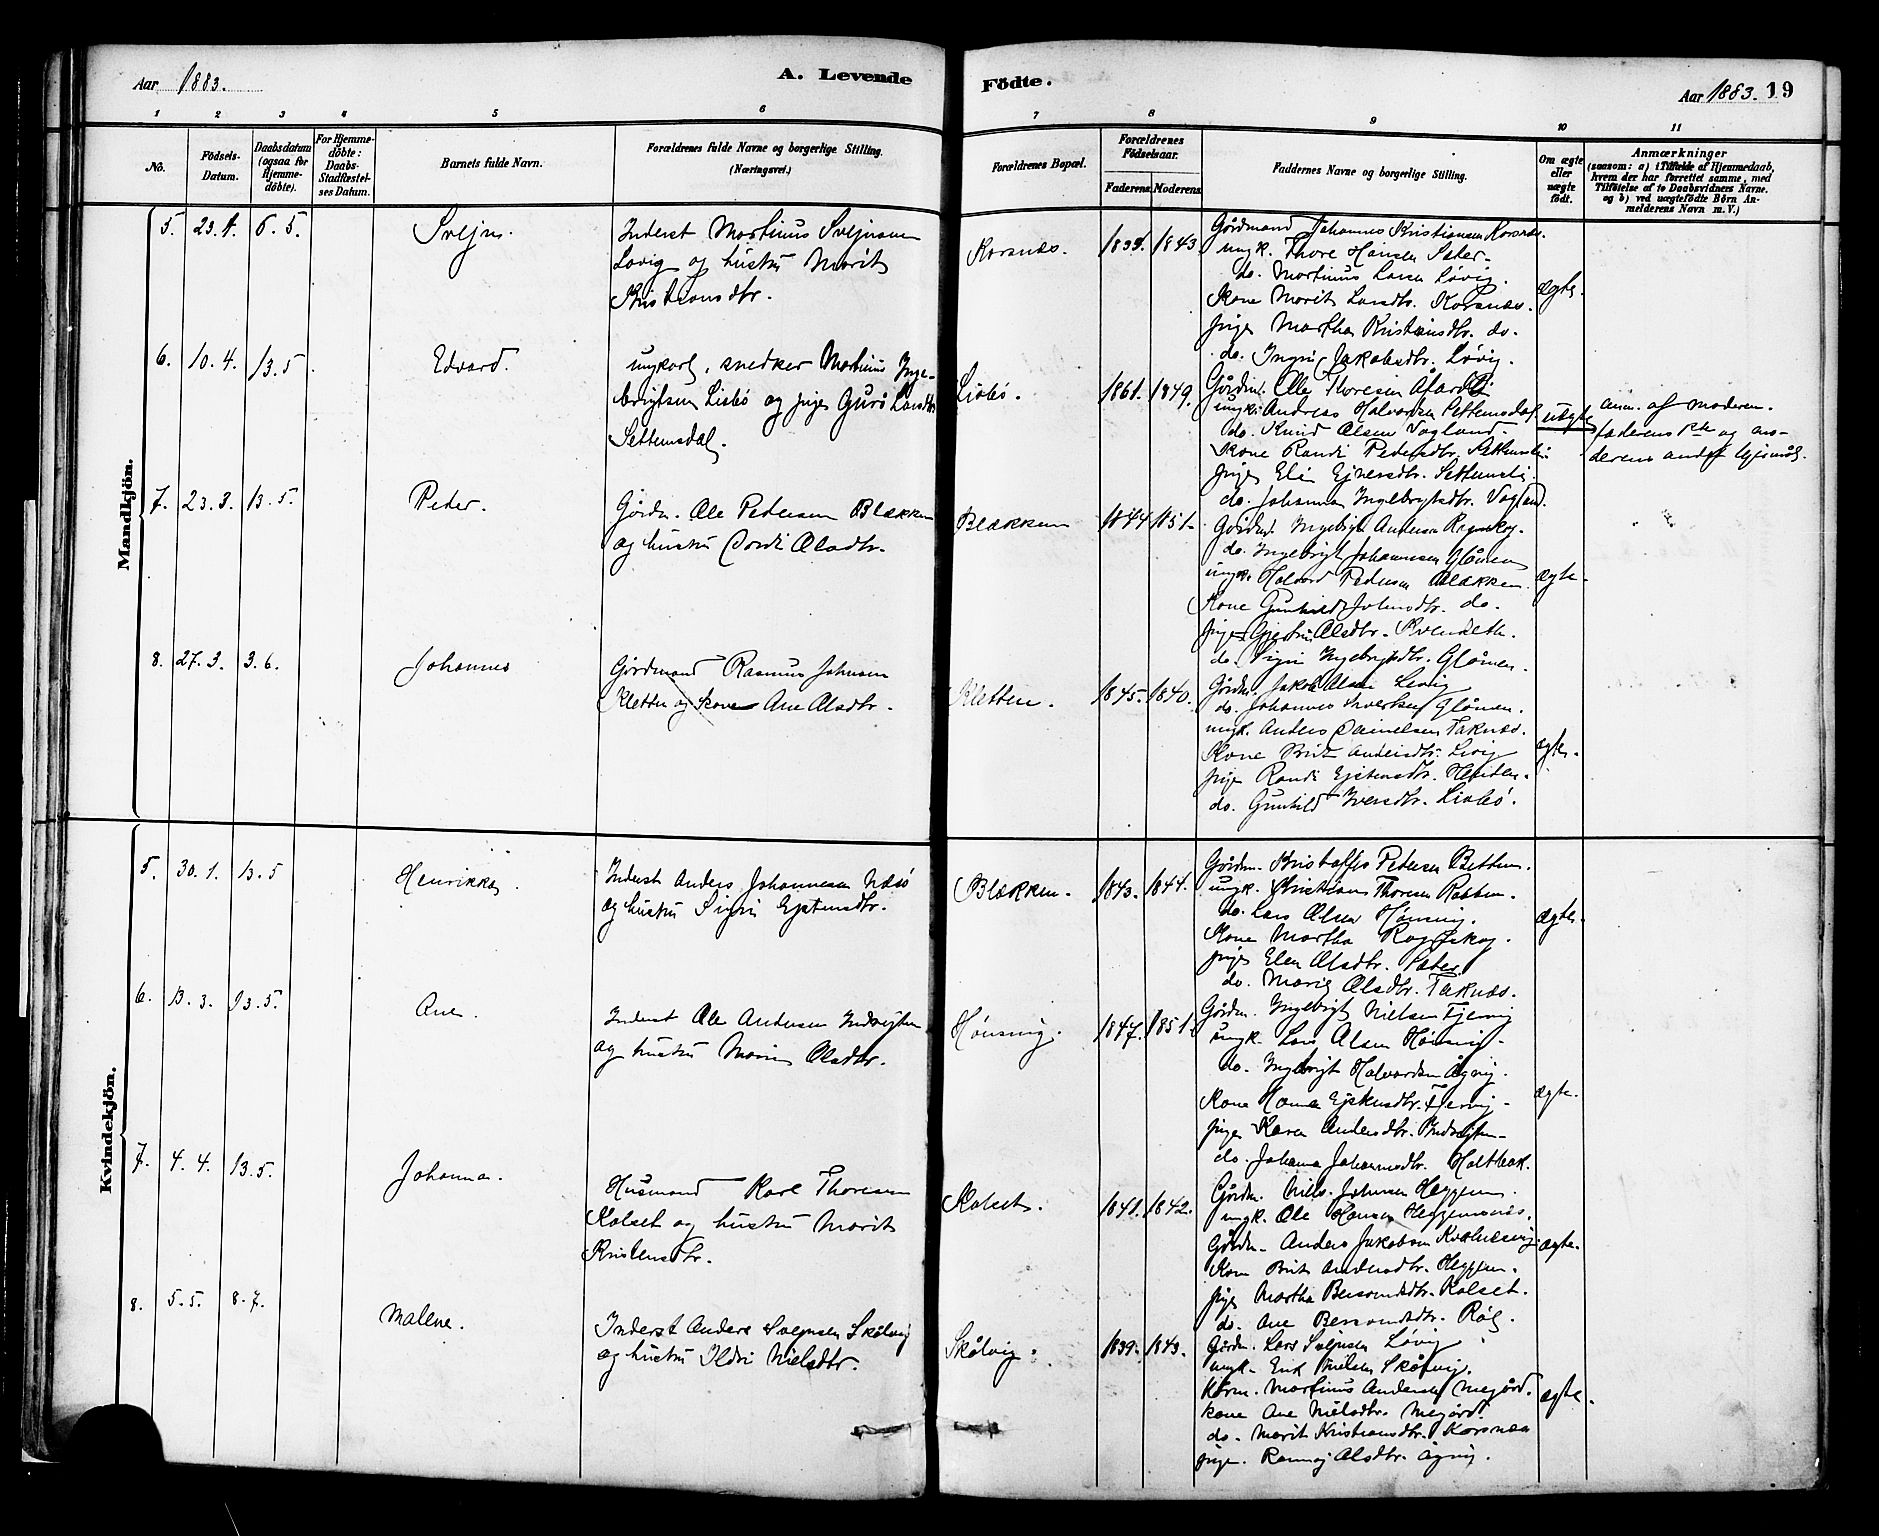 Aar 1883. A. Levende
Födte. Aar 1883. 19
1 2 3 4 5 6
7 8 9 10 11
No.
Födsels-
Datum.
Daabsdatum
(ogsaa for
Hjemme-
döbte).
For Hjemme-
döbte:
Daabs-
Stadfæstel-
ses Datum.
Barnets fulde Navn.
Forældrenes fulde Navne og borgerlige Stilling.
(Næringsvei.)
Forældrenes Bopæl.
Forældrenes
Födselsaar.
Faderens. Moderens.
Faddernes Navne og borgerlige Stilling.
Om ægte
eller
uægte
født.
Anmærkninger
(saasom: a) i Tilfælde af Hjemmedaab,
hvem der har forrettet samme, med
Tilföielse af to Daabsvidners Navne.
og b) ved uægtefödte Börn An-
melderens Navn m. V.)
Mandkjön.
5. 23.4. 6.5. Svejn.
Inderst Martinus Svejnsen
Løvig og hustru Marit
Kristiansdtr.
Korsnæs. 1843
Gårdmand Johannes Kristiansen Korsnæs.
ungk. Thore Hansen Sæter.
do. Martinus Larsen Løvig.
Kone Marit Larsdtr. Korsnæs.
pige Martha Kristiansdtr. do.
do. Ingri Jakobsdtr. Løvig.
ægte.
6. 10.4. 13.5 Edvard.
ungkarl, snedker Martinus Inge-
brigtsen Lisbø og pige Guri Larsdtr.
Settemsdal.
Lisbø. 1861. 1849.
Gårdm. Ole Thoresen
ungk. Andreas Halvorsen Settemsdal.
do. Knud Olsen Vagland.
Kone Randi Pedersdtr. Settemsli.
pige Eli Ejnersdtr. Settemsli.
do. Johanna Ingebrigtsdtr. Vagland.
uægte
anm. af moderen.
faderens 1ste og mo-
derens andet lejermål.
7. 23.3. 13.5. Peder.
Gårdm. Ole Pedersen Blækken
og hustru Dordi Olsdtr.
Blækken 1844. 1851.
Gårdmd. Ingebrigt Andersen
do. Ingebrigt Johannesen Glåmen
ungk. Halvord Pedersen Blækken.
Kone Gunhild Johnsdtr. do.
pige Gjertru Olsdtr. Kvendseth.
do. Sigri Ingebrigtsdtr. Glåmen.
ægte.
8. 27.3. 3.6. Johannes
Gårdmand Rasmus Johnsen
Kletten og Kone Ane Olsdtr.
Kletten. 1845. 1840.
Gårdm. Jakob Olsen Levig
do. Johannes Sivertsen Glåmen.
ungk. Anders Danielsen Taknæs.
Kone Brit Andersdtr. Levig
pige Randi Ejstensdtr. Henden.
do. Gunhild Iversdtr. Lisbø.
ægte.
Kvindekjön.
5. 30.1. 13.5 Henrikka.
Inderst Anders Johannesen Næsø
og hustru Sigri Ejstensdtr.
Blækken. 1843. 1844.
Gårdm. Kristoffer Pedersen Betten.
ungk. Kristian Thoresen Rasten.
do. Lars Olsen Hønsvig.
Kone Martha
pige Elen Olsdtr. Sæter.
do. Marie Olsdtr. Taknæs.
ægte.
6. 13.3. 13.5. Ane.
Inderst Ole Andersen Indvejten
og hustru Marie Olsdtr.
Hønsvig. 1847. 1851.
Gårdm. Ingebrigt Nielsen Fjervig
ungk. Lars Olsen Hønsvig.
do. Ingebrigt Halvordsen Ågvig.
Kone Hanna Ejstensdtr. Fjervig.
pige Karen Andersdtr. Indvejten.
do. Johanna Johannesdtr. Holtbak.
ægte.
7. 4.4. 13.5. Johanna.
Husmand Karl Thoresen
Kalset og hustru Marit
Kristensdtr.
Kalset. 1841. 1842.
Gårdm. Niels Johnsen Heggem.
ungk. Ole Hansen Heggemsnæs.
Gårdm. Anders Jakobsen
Kone Brit Andersdtr. Heggem.
pige Martha Bersvendsdtr. Kalset.
do. Ane Bersvendsdtr. Røl.
ægte.
8. 5.5. 8.7. Malene.
Inderst Anders Svejnsen Skålvig
og hustru Ildri Nielsdtr.
Skålvig. 1839. 1843.
Gårdm. Lars Svejnsen Løvig
ungk. Erik Nielsen Skålvig.
Kårm. Martinus Andersen Megård.
kone Ane Nielsdtr. Megård.
do. Marit Kristiansdtr. Korsnæs
pige. Olsdtr. Ågvig.
ægte.